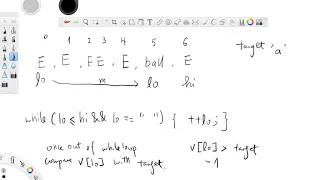 0 1 2 3 4 5 6
target 'a'
E, E, EE, E, ball, E
lo m lo hi
while (lo ≤ hi && lo == " ") { ++lo; }
once out of while loop
compare v[lo] with target.
v[lo] > target
-1